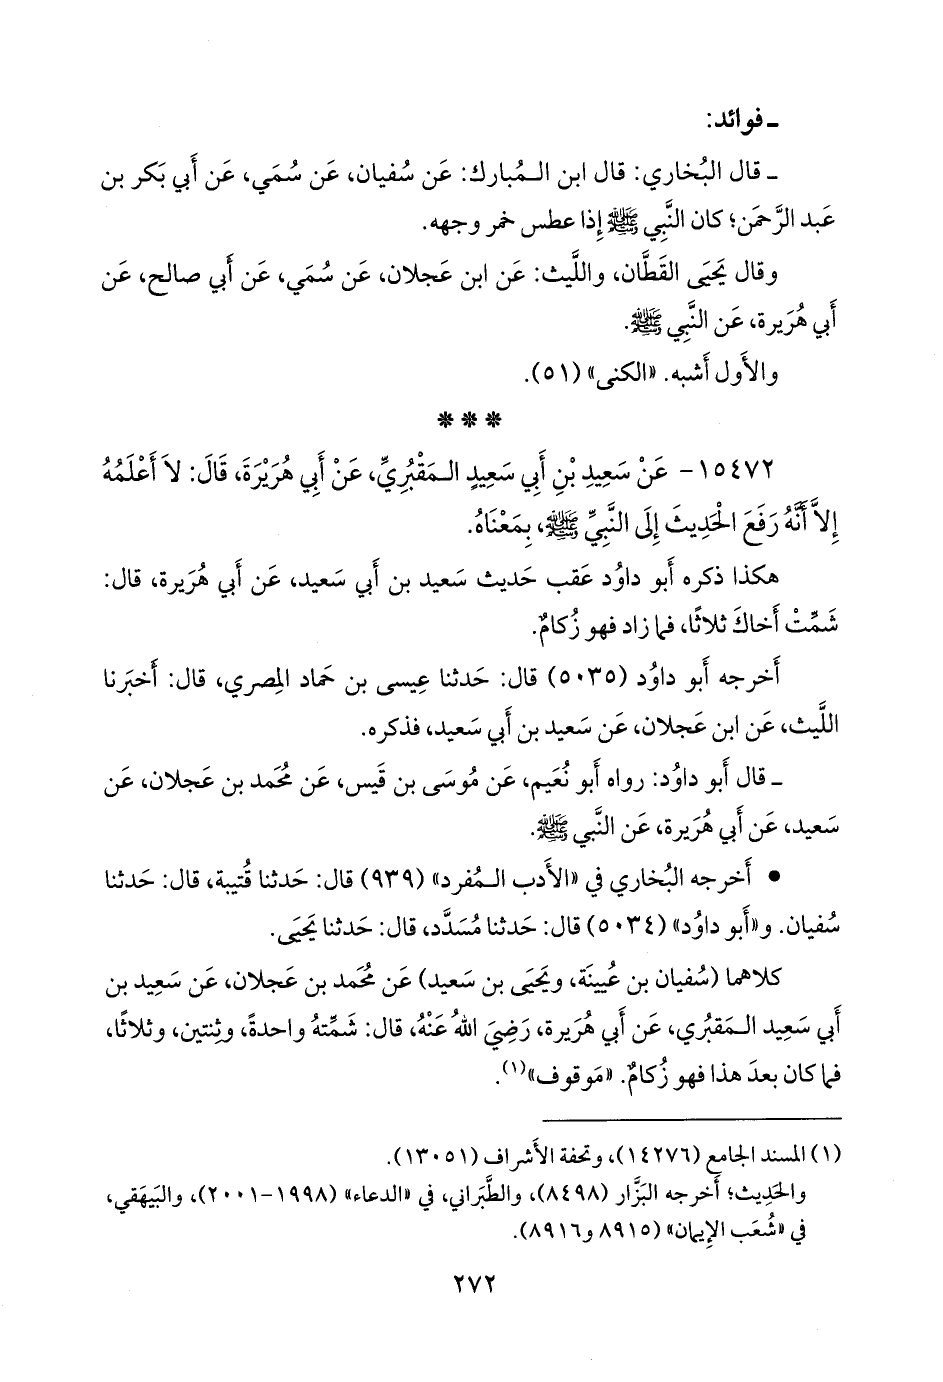 ـ فوائد:
ـ قال البُخاري: قال ابن الـمُبارك: عَن سُفيان، عَن سُمَي، عَن أَبي بَكر بن
عَبد الرَّحمَن؛ كان النَّبي ﷺ إِذا عطس خمر وجهه.
وقال يَحيَى القَطَّان، واللَّيث: عَن ابن عَجلان، عَن سُمَي، عَن أَبي صالح، عَن
أَبي هُرَيرة، عَن النَّبي ﷺ.
والأَول أَشبه. «الكنى» (٥١).
* * *
١٥٤٧٢- عَنْ سَعِيدِ بْنِ أَبِي سَعِيدٍ الـمَقْبُرِيِّ، عَنْ أَبِي هُرَيْرَةَ، قَالَ: لاَ أَعْلَمُهُ
إِلاَّ أَنَّهُ رَفَعَ الْحَدِيثَ إِلَى النَّبِيِّ ﷺ، بِمَعْنَاهُ.
هكذا ذكره أَبو داوُد عَقب حَديث سَعيد بن أَبي سَعيد، عَن أَبي هُرَيرة، قال:
شَمِّتْ أَخاكَ ثلاثًا، فما زاد فهو زُكامٌ.
أَخرجه أَبو داوُد (٥٠٣٥) قال: حَدثنا عِيسى بن حَماد المِصري، قال: أَخبَرنا
اللَّيث، عَن ابن عَجلان، عَن سَعيد بن أَبي سَعيد، فذكره.
ـ قال أَبو داوُد: رواه أَبو نُعَيم، عَن مُوسَى بن قَيس، عَن مُحَمد بن عَجلان، عَن
سَعيد، عَن أَبي هُرَيرة، عَن النَّبي ﷺ.
• أَخرجه البُخاري في «الأَدب الـمُفرد» (٩٣٩) قال: حَدثنا قُتيبة، قال: حَدثنا
سُفيان. و«أَبو داوُد» (٥٠٣٤) قال: حَدثنا مُسَدَّد، قال: حَدثنا يَحيَى.
كلاهما (سُفيان بن عُيينَة، ويَحيَى بن سَعيد) عَن مُحَمد بن عَجلان، عَن سَعِيد بن
أَبي سَعيد الـمَقبُري، عَن أَبي هُرَيرة، رَضِيَ اللهُ عَنْهُ، قال: شَمِّتهُ واحدةً، وثِنتين، وثلاثًا،
فما كان بعدَ هذا فهو زُكامٌ. «مَوقوف»(١).
(١) المسند الجامع (١٤٢٧٦)، وتحفة الأَشراف (١٣٠٥١).
والحَدِيث؛ أَخرجه البَزَّار (٨٤٩٨)، والطَّبَراني، في «الدعاء» (١٩٩٨-٢٠٠١)، والبَيهَقي،
في «شُعَب الإِيمان» (٨٩١٥ و٨٩١٦).
٢٧٢